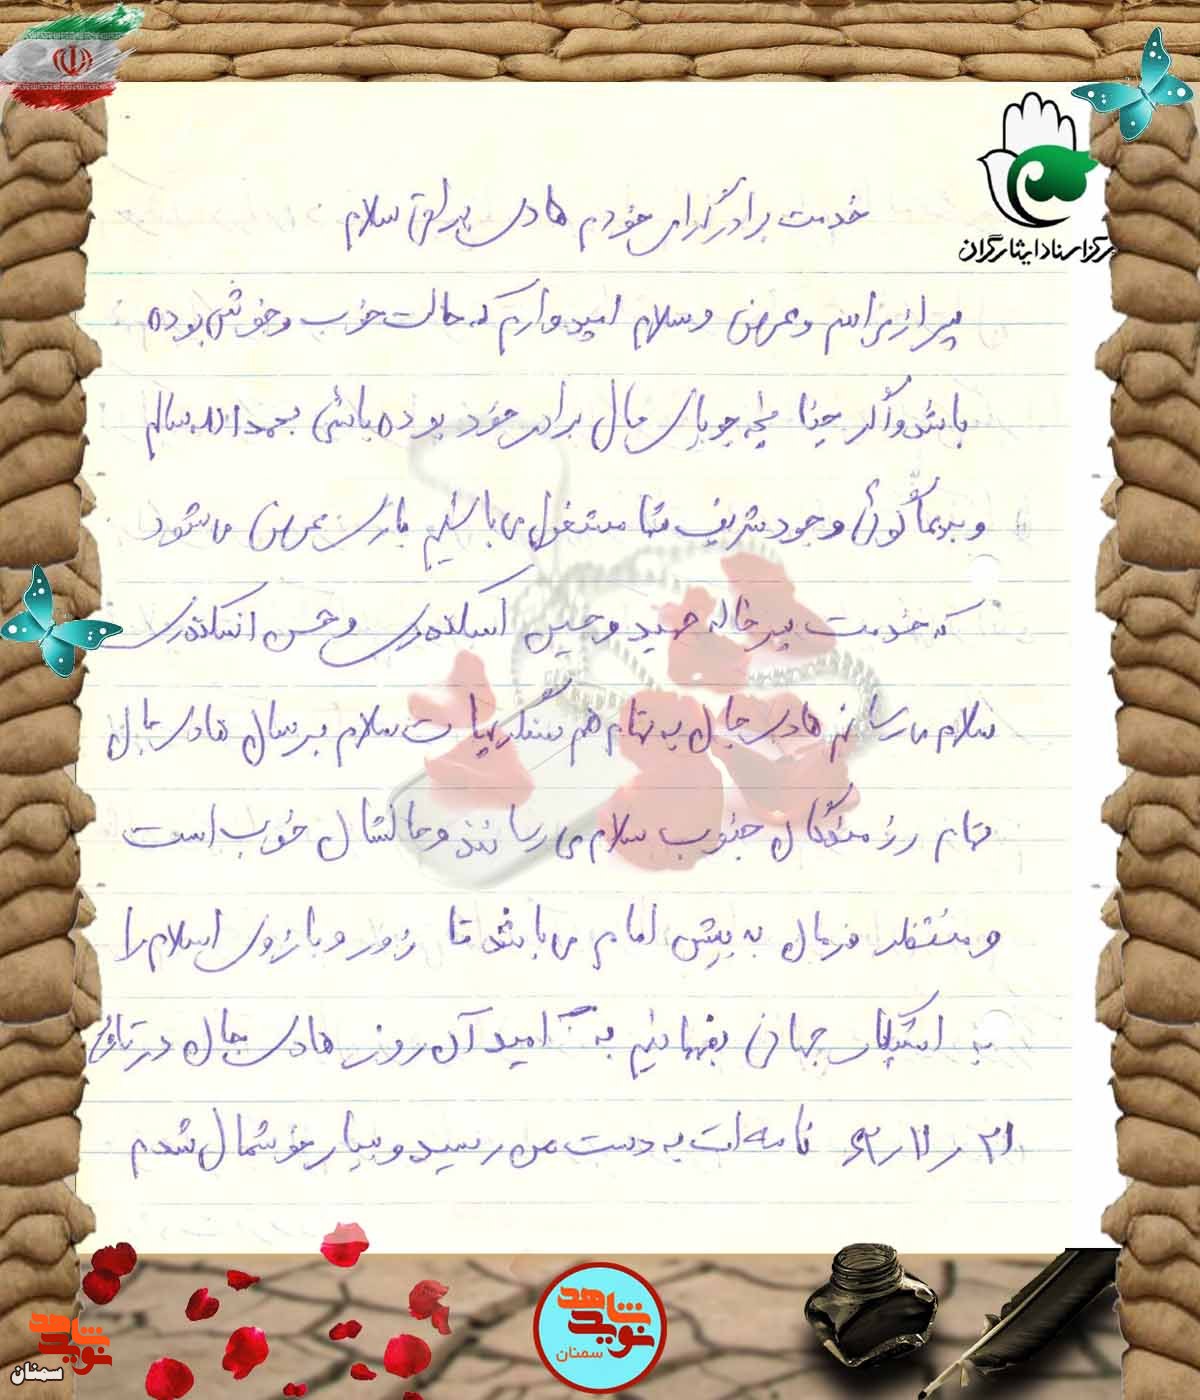 مرکز اسناد ایثارگران
خدمت برادر گرامی خودم هادی سلام
پس از عرض سلام امیدوارم که حالت خوب و خوش بوده
باشد و اگر چنانچه جویای حال برادر خود بوده باشی بحمدالله سالم
و بدعاگوئی وجود شریف شما مشغول می باشیم باری عرض می شود
که خدمت پسر خاله حمید و حسین اسکندری و حسن اسکندری
سلام می رسانم هادی جان به تمام هم سنگریهایت سلام برسان هادی جان
تمام رزمندگان جنوب سلام می رسانند و حالشان خوب است
و منتظر فرمان به پیش امام می باشند تا زور و بازوی اسلام را
به استکبار جهانی بفهمانیم به امید آن روز هادی جان در تاریخ
۲۱ ر ۱۱ ر ۶۲ نامه ات به دست من رسید و بسیار خوشحال شدم
نوید شاهد
سمنان
نوید شاهد
سمنان